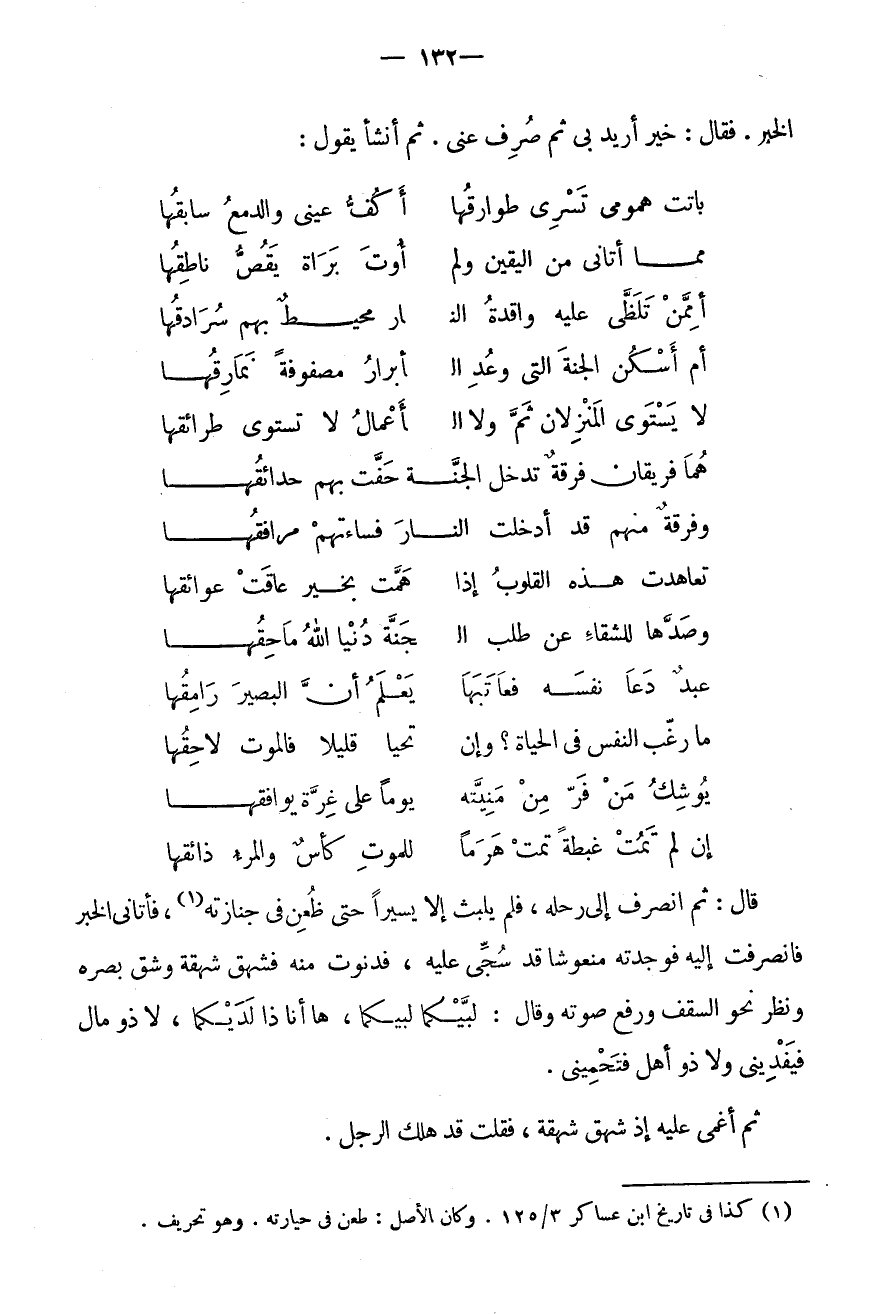 — ١٣٢ —
الخبر . فقال : خير أريد بى ثم صُرِف عنى . ثم أنشأ يقول :
باتت همومى تَسْرِى طوارقُها أَكُفُّ عينى والدمعُ سابقُها
ممـــا أتانى من اليقين ولم أُوتَ بَرَاة يَقُصُّ ناطِقُها
أمِمَّنْ تَلَظَّى عليه واقدةُ النـ ـار محيـــطٌ بهم سُرَادقُها
أم أَسْكُن الجنةَ التى وعُدِ الـ أبرارُ مصفوفةً نمَارِقُهـــا
لا يَسْتَوى المَنْزِلان ثَمَّ ولا الـ أَعْمالُ لا تستوى طرائقها
هُمَا فريقان فرقةٌ تدخل الجنَّـــة حَفَّت بهم حدائقُهـــا
وفرقةٌ منهم قد أدخلت النـــارَ فساءتهمْ مرافقُهـــا
تعاهدت هـــذه القلوبُ إذا هَمَّت بخـــير عاقَتْ عوائقها
وصَدَّها للشقاءِ عن طلب الـ جَنَّة دُنْيا اللهُ مَاحِقُهـــا
عبدٌ دَعَا نفسَـــه فعاَتَبَهَا يَعْـــلَمُ أنَّ البصيرَ رَامِقُها
ما رغّب النفس فى الحياة ؟ وإن تحيا قليلا فالموت لاحِقُها
يُوشِكُ مَنْ فَرّ مِنْ مَنِيَّته يوماً على غِرَّة يوافقهـــا
إن لم تَمُتْ غبطةً تمتْ هَرَماً للموتِ كأسٌ والمرء ذائقها
قال : ثم انصرف إلى رحله ، فلم يلبث إلا يسيراً حتى ظُعِن فى جنازته (١) ، فأتانى الخبر
فانصرفت إليه فوجدته منعوشا قد سُجِّى عليه ، فدنوت منه فشهق شهقة وشق بصره
ونظر نحو السقف ورفع صوته وقال : لبَّيْـــكما لبيكما ، ها أنا ذا لَدَيْـــكما ، لا ذو مال
فيَفْدِينى ولا ذو أهل فتَحْمِينى .
ثم أغمى عليه إذ شهق شهقة ، فقلت قد هلك الرجل .
(١) كذا فى تاريخ ابن عساكر ١٢٥/٣ . وكان الأصل : طعن فى حيارته . وهو تحريف .